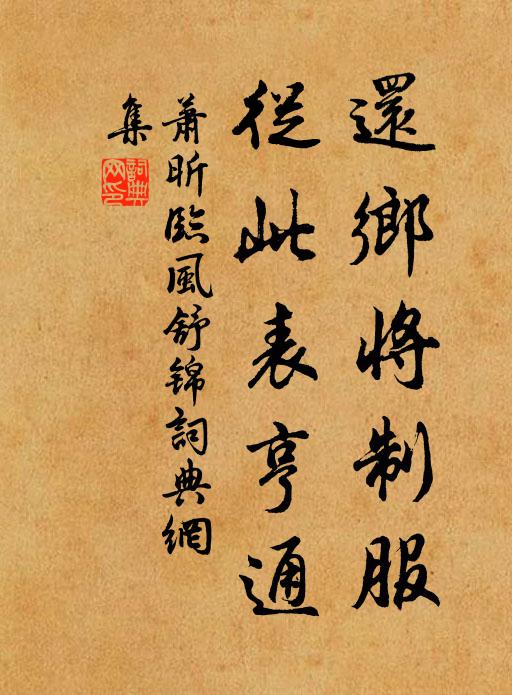 還鄉將制服
從此表亨通
蕭昕臨風舒錦詞典網
集
詞典網印